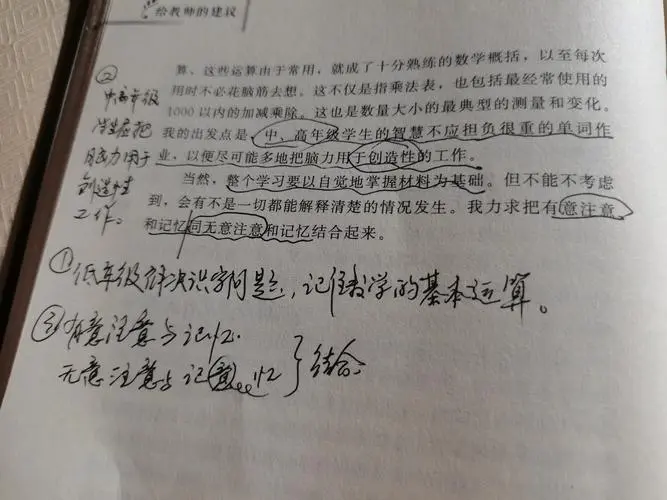 给教师的建议
算、这些运算由于常用，就成了十分熟练的数学概括，以至每次
用时不必花脑筋去想。这不仅是指乘法表，也包括最经常使用的
1000以内的加减乘除。这也是数量大小的最典型的测量和变化。
我的出发点是，中、高年级学生的智慧不应担负很重的单词作
业，以便尽可能多地把脑力用于创造性的工作。
当然，整个学习要以自觉地掌握材料为基础。但不能不考虑
到，会有不是一切都能解释清楚的情况发生。我力求把有意注意
和记忆同无意注意和记忆结合起来。
②
中高年级
学生应把
脑力用于
创造性
工作。
①低年级解决识字问题，记住数学的基本运算。
③有意注意与记忆
无意注意与记忆 结合